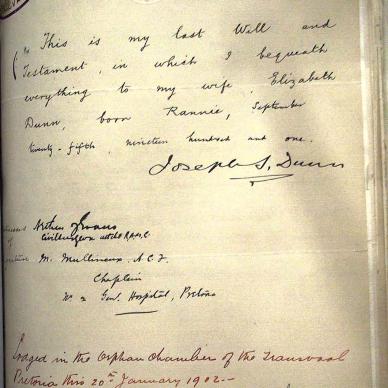 This is my last Will and
Testament, in which I bequeath
everything to my wife, Elizabeth
Dunn, born Rannie, September
twenty-fifth, nineteen hundred and one.
Joseph S. Dunn
Arthur Evans
Civil Surgeon attchd R.A.M.C.
M. Mullineux. A.C.F.
Chaplain
No 2 Genl. Hospital, Pretoria
Lodged in the Orphan Chamber of the Transvaal
Pretoria this 20th January 1902-